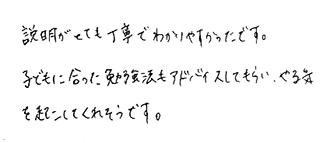 説明がとても丁寧でわかりやすかったです。
子どもに合った勉強法もアドバイスしてもらい、やる気
を起こしてくれそうです。